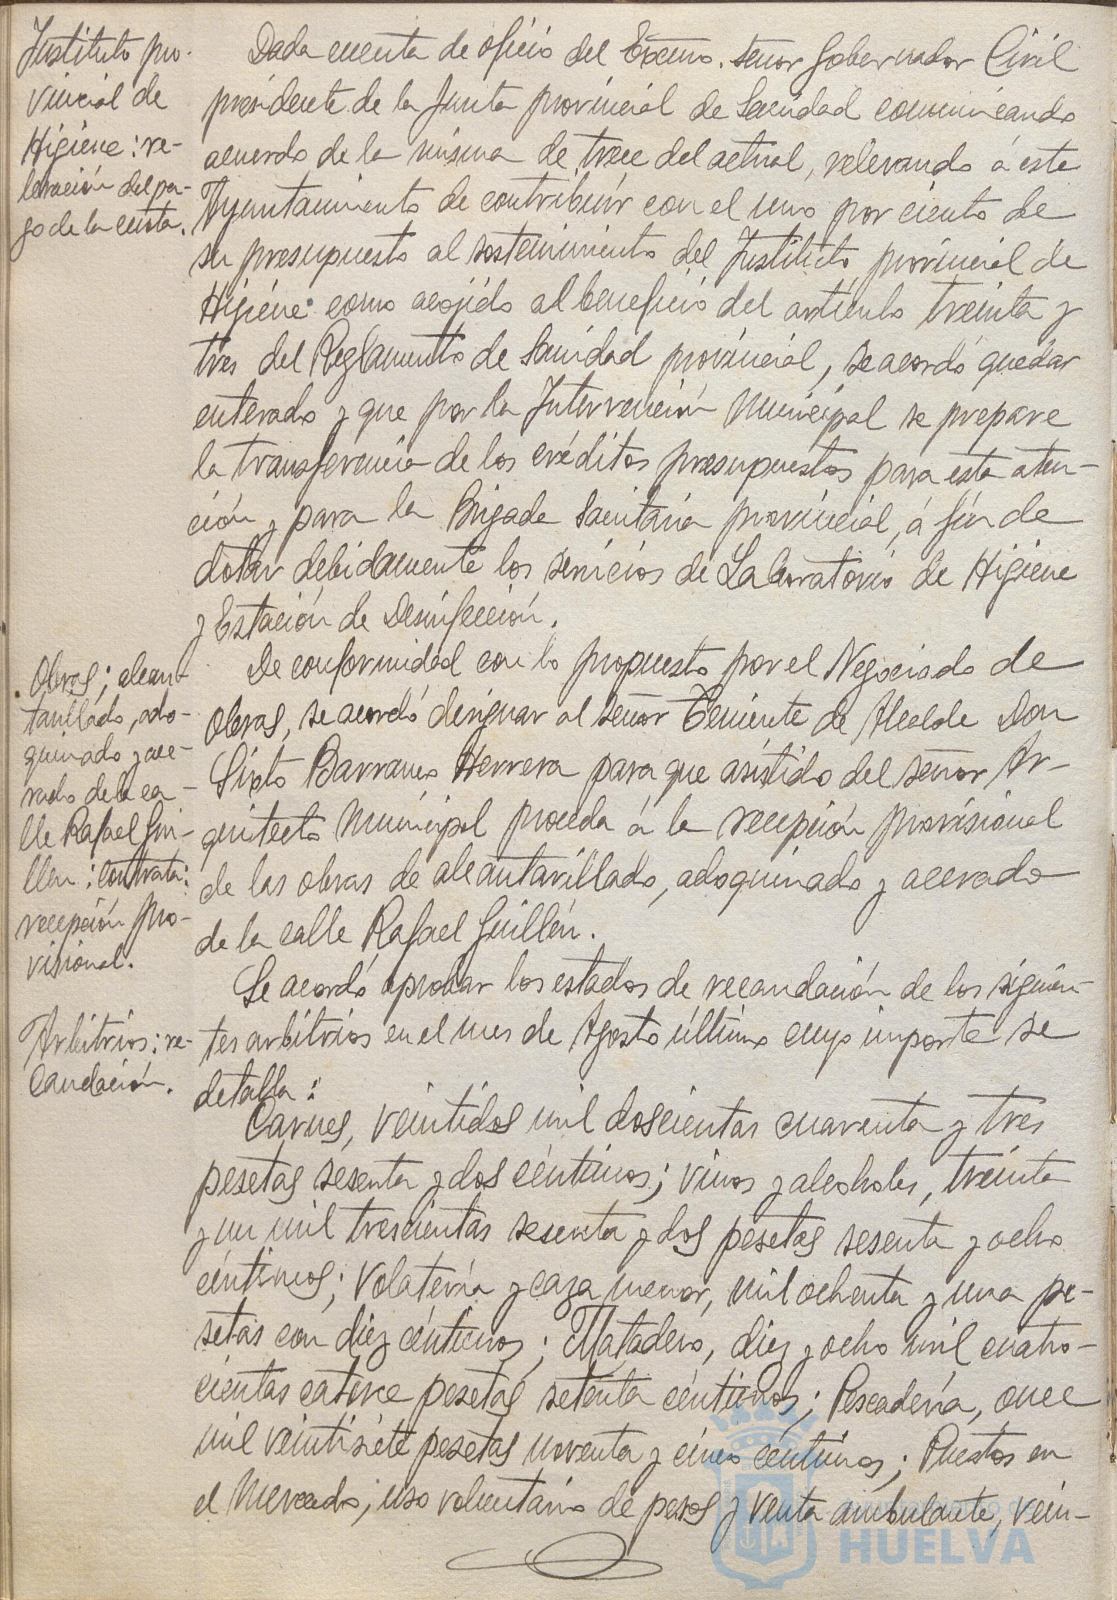 Instituto pro-
vincial de
Higiene: re-
levación del pa-
go de la cuota.
Dada cuenta de oficio del Excmo. señor Gobernador Civil
presidente de la Junta provincial de Sanidad comunicando
acuerdo de la misma de trece del actual, relevando á este
Ayuntamiento de contribuir con el uno por ciento de
su presupuesto al sostenimiento del Instituto provincial de
Higiene como acojido al beneficio del artículo treinta y
tres del Reglamento de Sanidad provincial, se acordó quedar
enterado y que por la Intervención Municipal se prepare
la transferencia de los créditos presupuestos para esta aten-
ción y para la Brigada Sanitaria provincial, á fin de
dotar debidamente los servicios de Laboratorio de Higiene
y Estación de Desinfección.
Obras; alcan-
tarillado, ado-
quinado y ace-
rado de la ca-
lle Rafael Gui-
llen: contrata:
recepción pro-
visional.
De conformidad con lo propuesto por el Negociado de
Obras, se acordó designar al señor Teniente de Alcalde Don
Sixto Barranco Herrera para que asistido del señor Ar-
quitecto Municipal proceda á la recepción provisional
de las obras de alcantarillado, adoquinado y acerado
de la calle Rafael Guillén.
Arbitrios: re-
caudación.
Se acordó aprobar los estados de recaudación de los siguien-
tes arbitrios en el mes de Agosto último cuyo importe se
detalla:
Carnes, veintidos mil doscientas cuarenta y tres
pesetas sesenta y dos céntimos; vinos y alcoholes, treinta
y un mil trescientas sesenta y dos pesetas sesenta y ocho
céntimos; Volatería y caza menor, mil ochenta y una pe-
setas con diez céntimos; Matadero, diez y ocho mil cuatro-
cientas catorce pesetas setenta céntimos; Pescadería, once
mil veintisiete pesetas noventa y cinco céntimos; Puestos en
el Mercado, uso voluntario de pesos y venta ambulante, vein-
HUELVA